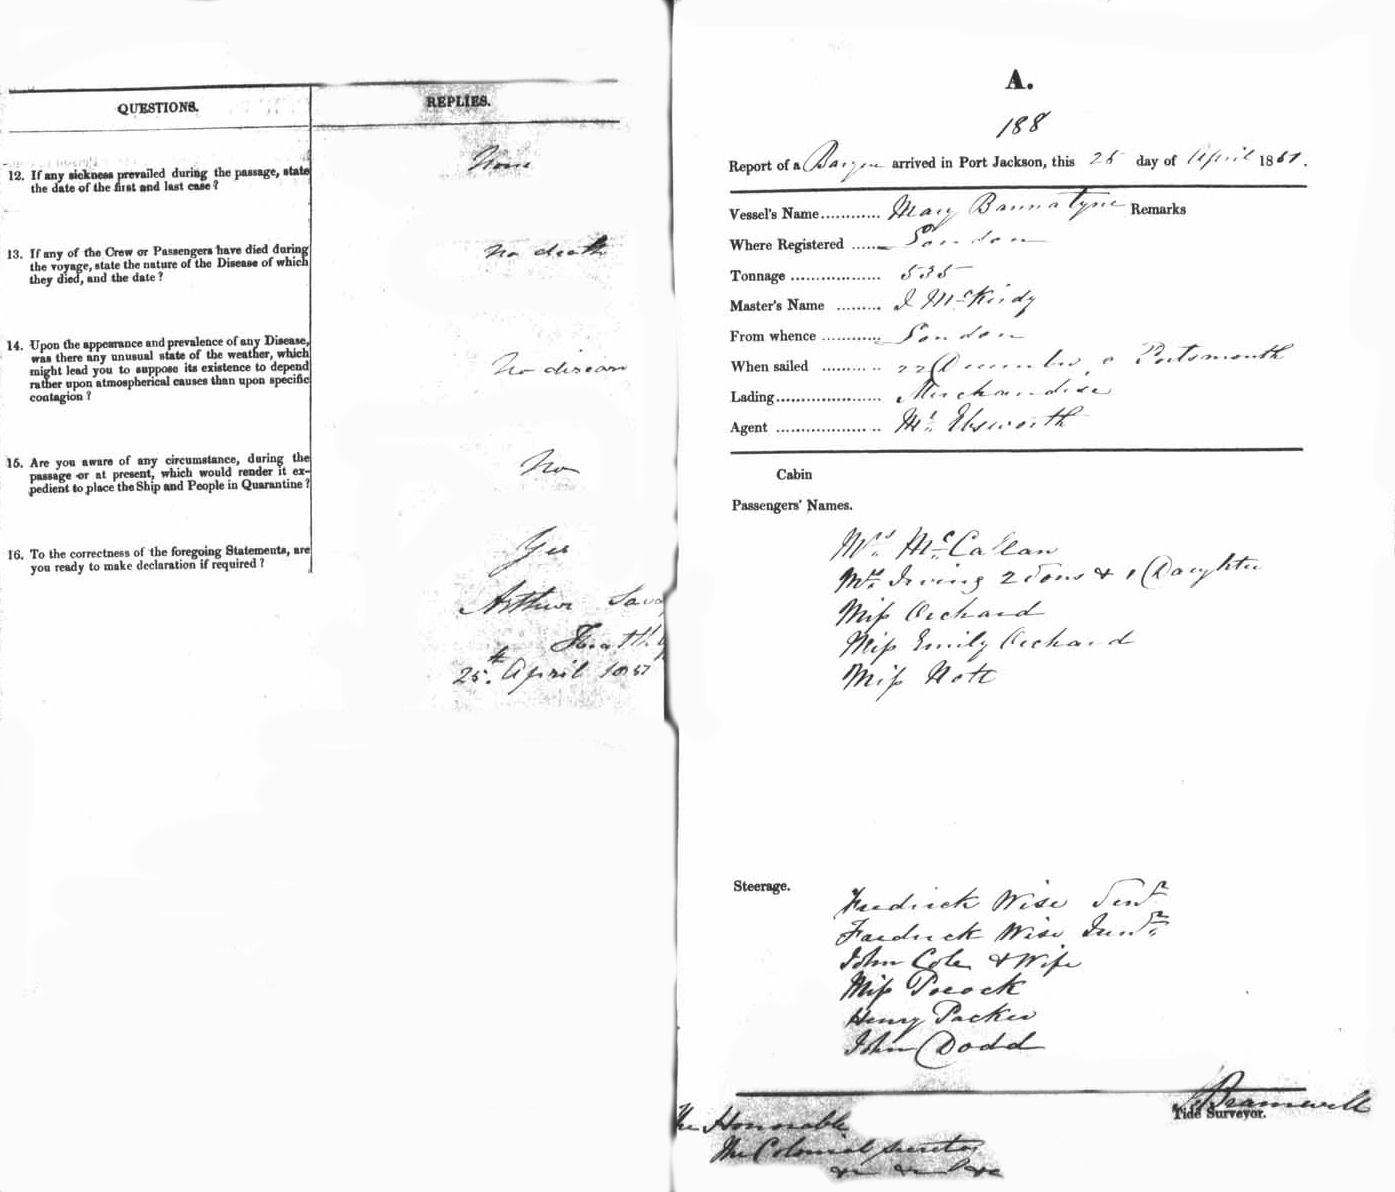 QUESTIONS.
REPLIES.
12. If any sickness prevailed during the passage, state
the date of the first and last case?
None
13. If any of the Crew or Passengers have died during
the voyage, state the nature of the Disease of which
they died, and the date?
No death
14. Upon the appearance and prevalence of any Disease,
was there any unusual state of the weather, which
might lead you to suppose its existence to depend
rather upon atmospherical causes than upon specific
contagion?
No disease
15. Are you aware of any circumstance, during the
passage or at present, which would render it ex-
pedient to place the Ship and People in Quarantine?
No
16. To the correctness of the foregoing Statements, are
you ready to make declaration if required?
Yes
Arthur
25th April 1851
A.
188
Report of a Barque arrived in Port Jackson, this 25 day of April 1851.
Vessel's Name............ Mary Bannatyne Remarks
Where Registered ...... London
Tonnage .................. 535
Master's Name ......... J McKirdy
From whence ............ London
When sailed ............ 22 December Portsmouth
Lading..................... Merchandise
Agent ..................... Mr. Ebsworth
Cabin
Passengers' Names.
Mrs. McCallan
Mrs. Irving 2 Sons & 1 Daughter
Miss Orchard
Miss Emily Orchard
Miss Nott
Steerage.
Fredrick Wise Senr.
Fredrick Wise Junr.
John Cole & Wife
Miss Pocock
Henry Packer
John Dodd
Bramwell
Tide Surveyor.
The Honorable
The Colonial Secretary